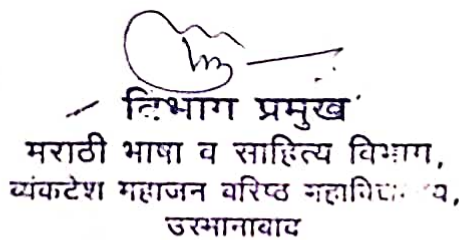 विभाग प्रमुख
मराठी भाषा व साहित्य विभाग,
व्यंकटेश महाजन वरिष्ठ महाविद्यालय,
उस्मानाबाद